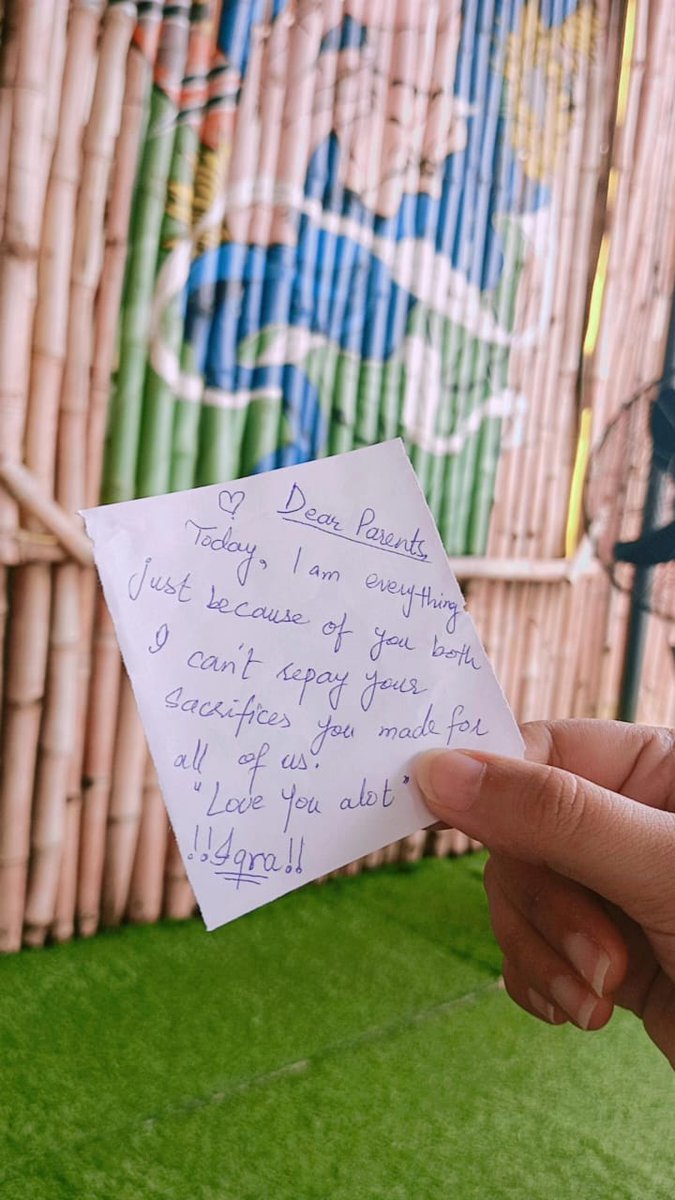 ♡ Dear Parents,
Today, I am everything
just because of you both
I can't repay your
Sacrifices you made for
all of us.
"Love You alot"
!!Iqra!!